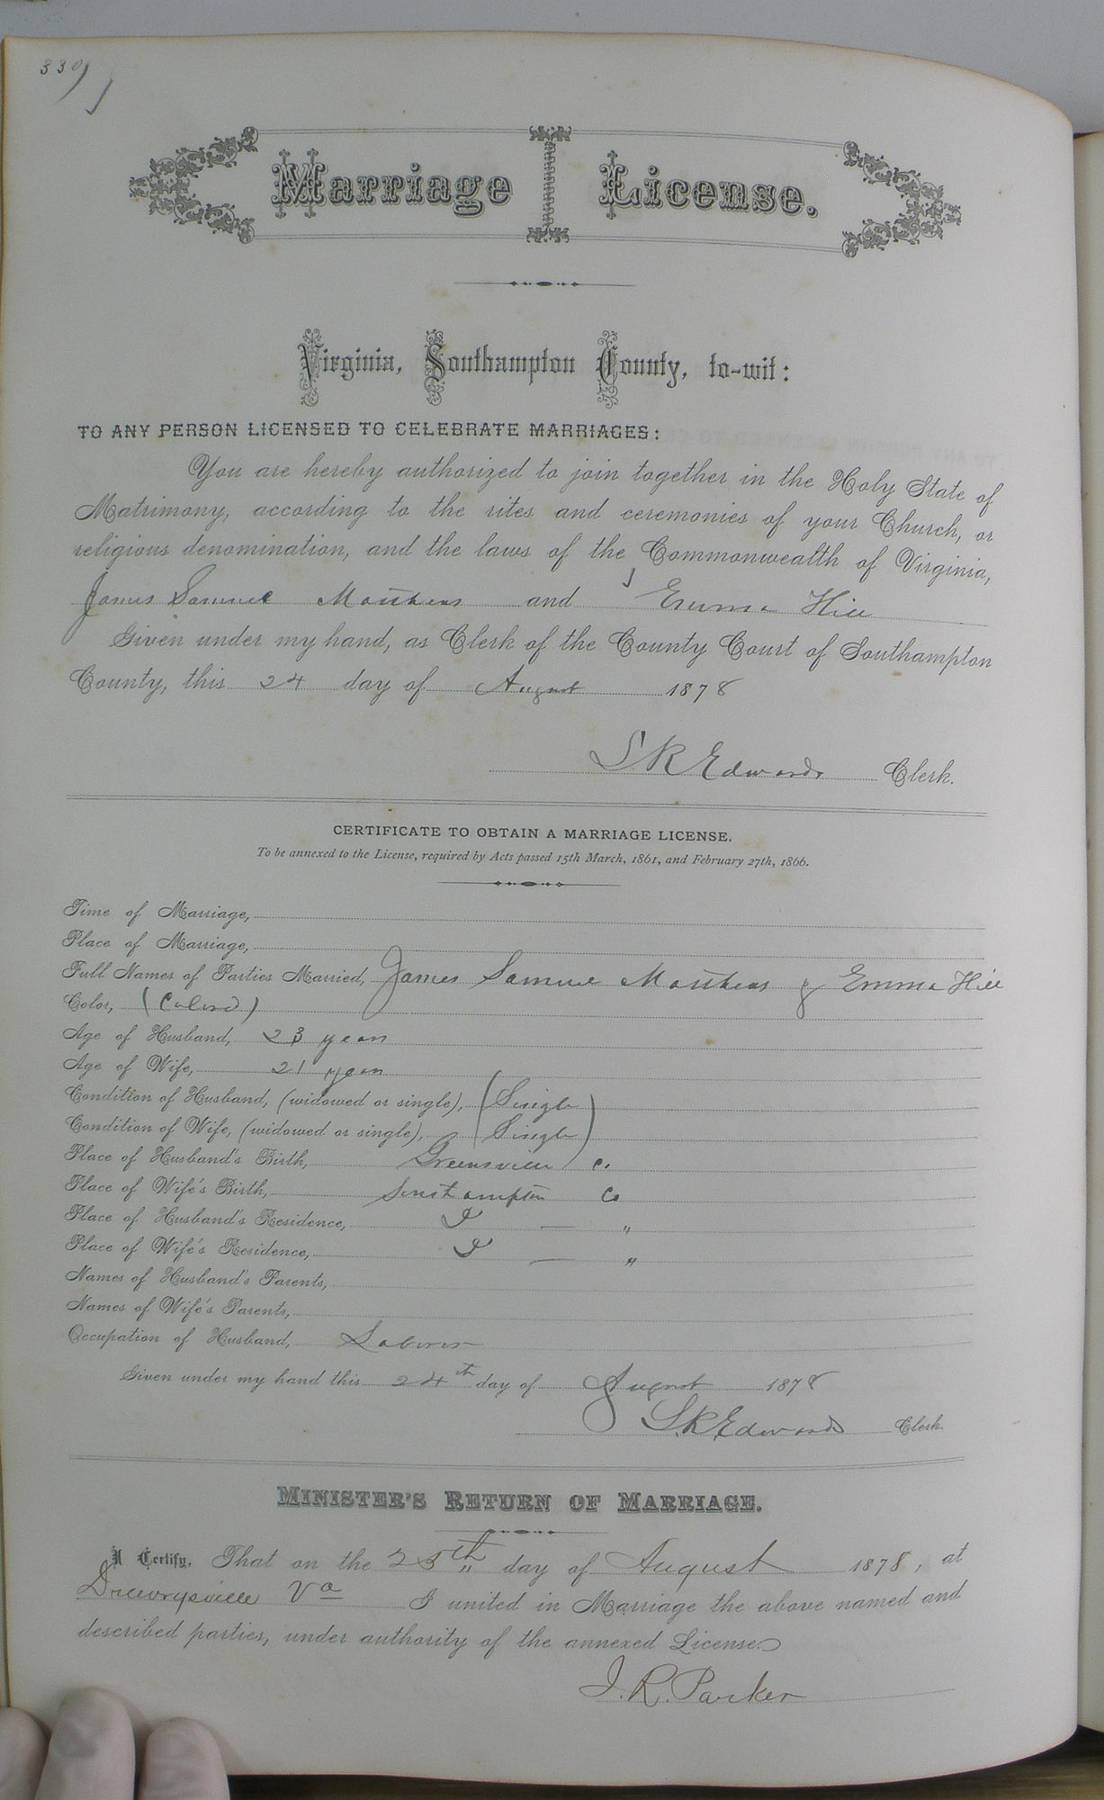 330
Marriage License.
Virginia, Southampton County, to-wit:
TO ANY PERSON LICENSED TO CELEBRATE MARRIAGES:
You are hereby authorized to join together in the Holy State of
Matrimony, according to the rites and ceremonies of your Church, or
religious denomination, and the laws of the Commonwealth of Virginia,
James Samuel Matthews and Emma Hill
Given under my hand, as Clerk of the County Court of Southampton
County, this 24 day of August 1878
S R Edwards Clerk.
CERTIFICATE TO OBTAIN A MARRIAGE LICENSE.
To be annexed to the License, required by Acts passed 15th March, 1861, and February 27th, 1866.
Time of Marriage,
Place of Marriage,
Full Names of Parties Married, James Samuel Matthews & Emma Hill
Color, (Colord)
Age of Husband, 23 years
Age of Wife, 21 years
Condition of Husband, (widowed or single), (Single)
Condition of Wife, (widowed or single), (Single)
Place of Husband's Birth, Greensville C.
Place of Wife's Birth, Southampton Co
Place of Husband's Residence, — "
Place of Wife's Residence, — "
Names of Husband's Parents,
Names of Wife's Parents,
Occupation of Husband, Laborer
Given under my hand this 24th day of August 1878
S.R Edwards Clerk.
MINISTER'S RETURN OF MARRIAGE.
I Certify, That on the 25th day of August 1878, at
Drewrysville Va I united in Marriage the above named and
described parties, under authority of the annexed License.
J. R. Parker